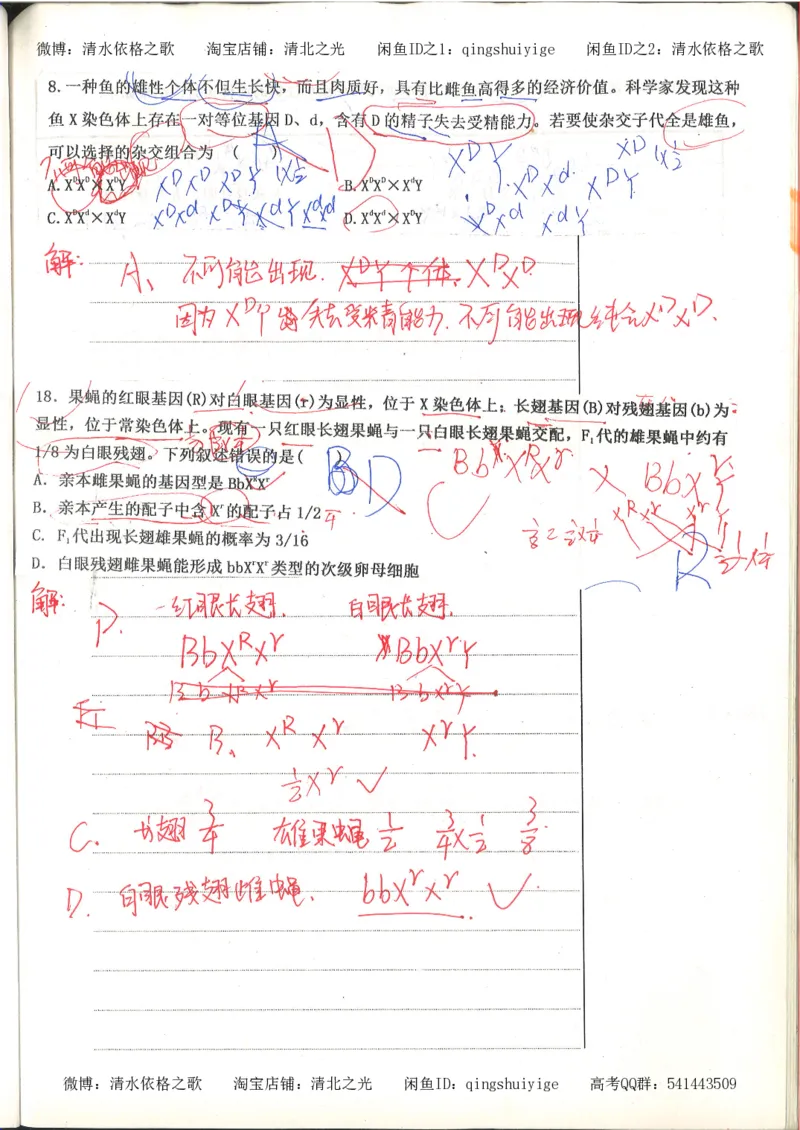 微博：清水依格之歌 淘宝店铺：清北之光 闲鱼ID之1：qingshuiyige 闲鱼ID之2：清水依格之歌
8.一种鱼的雄性个体不但生长快，而且肉质好，具有比雌鱼高得多的经济价值。科学家发现这种
鱼 X 染色体上存在一对等位基因 D、d，含有 D 的精子失去受精能力。若要使杂交子代全是雄鱼，
可以选择的杂交组合为 （ ）
A.XᴰXᴰ×XᵈY
B.XᴰXᵈ×XᵈY
C.XᴰXᵈ×XᵈY
D.XᵈXᵈ×XᴰY
XᴰXᴰ XᴰY 1×½
XᴰXᵈ XᴰY XᵈY XᵈXᵈ
XᴰY
XᴰXᵈ XᴰY
XᴰXᵈ XᵈY
XD 1×½
解：
A、不可能出现. XᴰY个体. XᴰXᴰ
因为XᴰY 失去受精能力. 不可能出现纯合XᴰXᴰ.
18. 果蝇的红眼基因(R)对白眼基因(r)为显性，位于 X 染色体上；长翅基因(B)对残翅基因(b)为
显性，位于常染色体上。现有一只红眼长翅果蝇与一只白眼长翅果蝇交配，F₁代的雄果蝇中约有
1/8 为白眼残翅。下列叙述错误的是( )
B D
BbXᴿXʳ × BbXʳY
A. 亲本雌果蝇的基因型是 BbXᴿXʳ
B. 亲本产生的配子中含 Xʳ的配子占 1/2
C. F₁代出现长翅雄果蝇的概率为 3/16
D. 白眼残翅雌果蝇能形成 bbXʳXʳ类型的次级卵母细胞
XᴿXʳ XʳY
⅛=½×¼
½×¼
解:
P. 一红眼长翅. 白眼长翅.
BbXᴿXʳ BbXʳY
B b XᴿXʳ B b XʳY
B、 Xᴿ Xʳ XʳY.
½Xʳ ✓
C. 长翅 3/4 雄果蝇 1/2 3/4×1/2 3/8.
D. 白眼残翅雌蝇. bbXʳXʳ. ✓.
微博：清水依格之歌 淘宝店铺：清北之光 闲鱼ID：qingshuiyige 高考QQ群：541443509